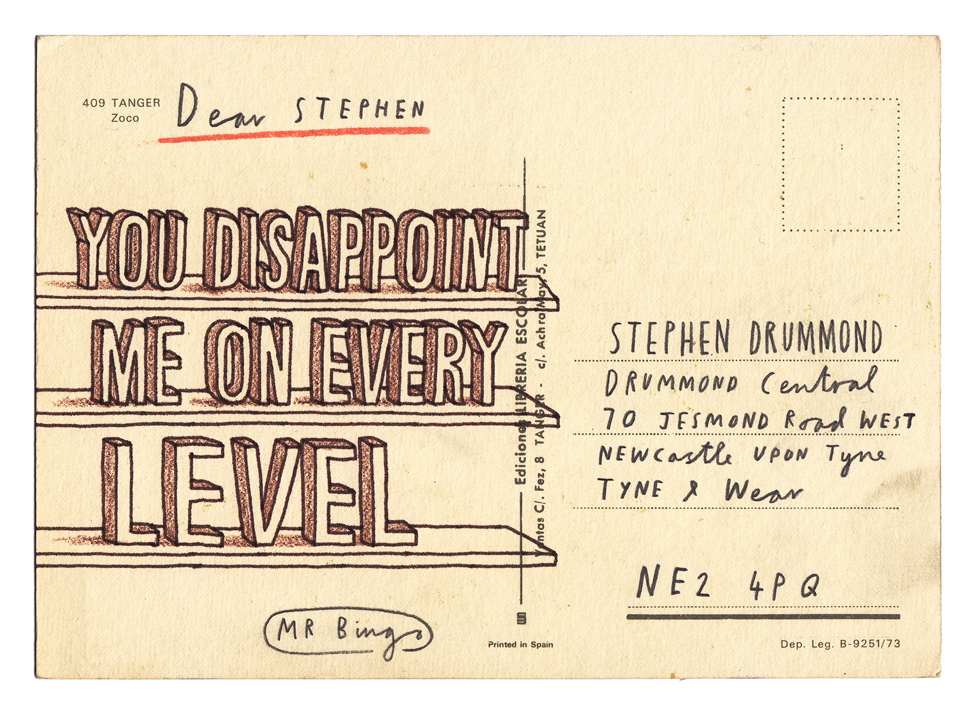 409 TANGER
Zoco
Dear STEPHEN
YOU DISAPPOINT
ME ON EVERY
LEVEL
MR Bingo
Ediciones LIBRERIA ESCOBAR
Ventas C/. Fez, 8 TANGER - c/. Achra Mayo 5, TETUAN
Printed in Spain
STEPHEN DRUMMOND
DRUMMOND Central
70 JESMOND Road WEST
NEWcastle UPON Tyne
TYNE & Wear
NE2 4PQ
Dep. Leg. B-9251/73